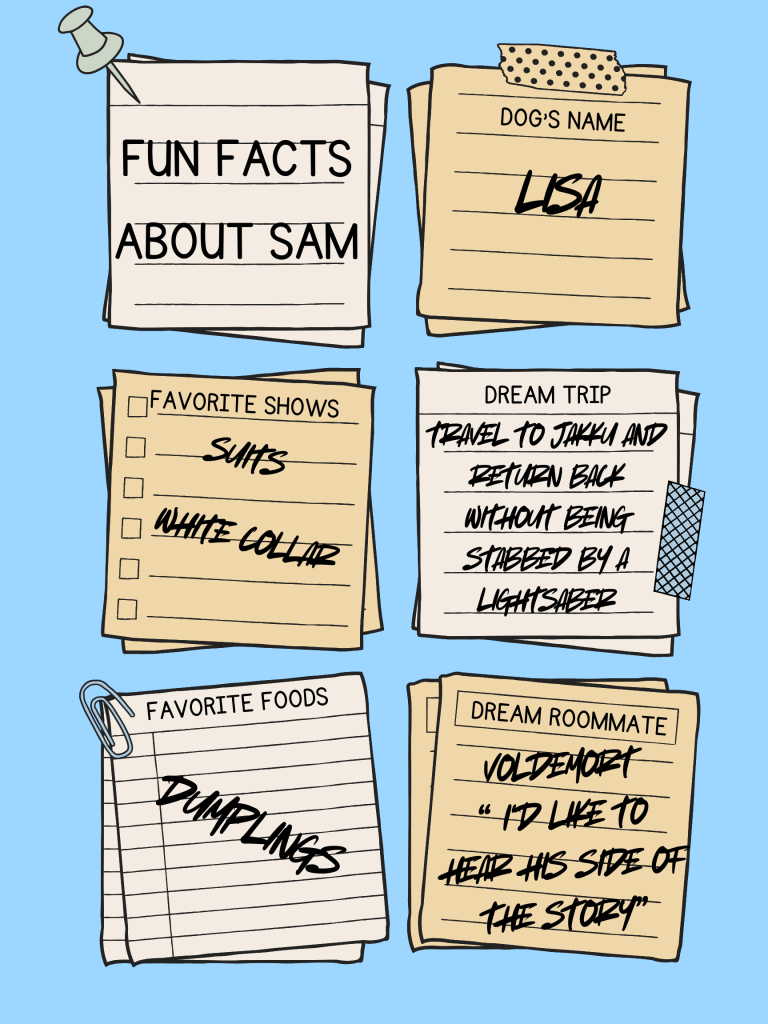 FUN FACTS
ABOUT SAM
DOG'S NAME
LISA
FAVORITE SHOWS
SUITS
WHITE COLLAR
DREAM TRIP
TRAVEL TO JAKKU AND
RETURN BACK
WITHOUT BEING
STABBED BY A
LIGHTSABER
FAVORITE FOODS
DUMPLINGS
DREAM ROOMMATE
VOLDEMORT
“ I'D LIKE TO
HEAR HIS SIDE OF
THE STORY”